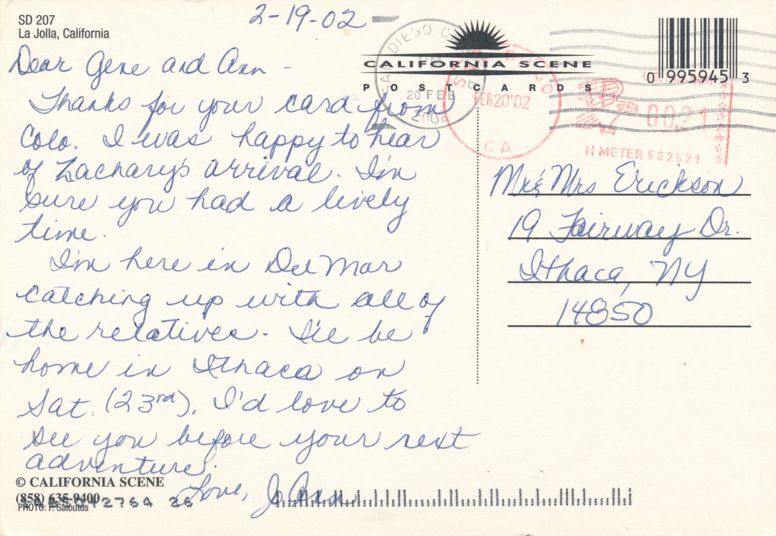 SD 207
La Jolla, California
2-19-02
CALIFORNIA SCENE
POSTCARDS
0 995945 3
SAN DIEGO CA
20 FEB
2002
SAN DIEGO
FEB 20'02
CA
0021
H METER 682521
Dear Gene and Ann -
Thanks for your card from
Colo. I was happy to hear
of Zachary's arrival. I'm
sure you had a lively
time.
I'm here in Del Mar
catching up with all of
the relatives. I'll be
home in Ithaca on
Sat. (23rd). I'd love to
see you before your next
adventure.
Love, Jo Ann
Mr & Mrs Erickson
19 Fairway Dr.
Ithaca, NY
14850
© CALIFORNIA SCENE
(858) 635-9400
PHOTO: P. Saloutos